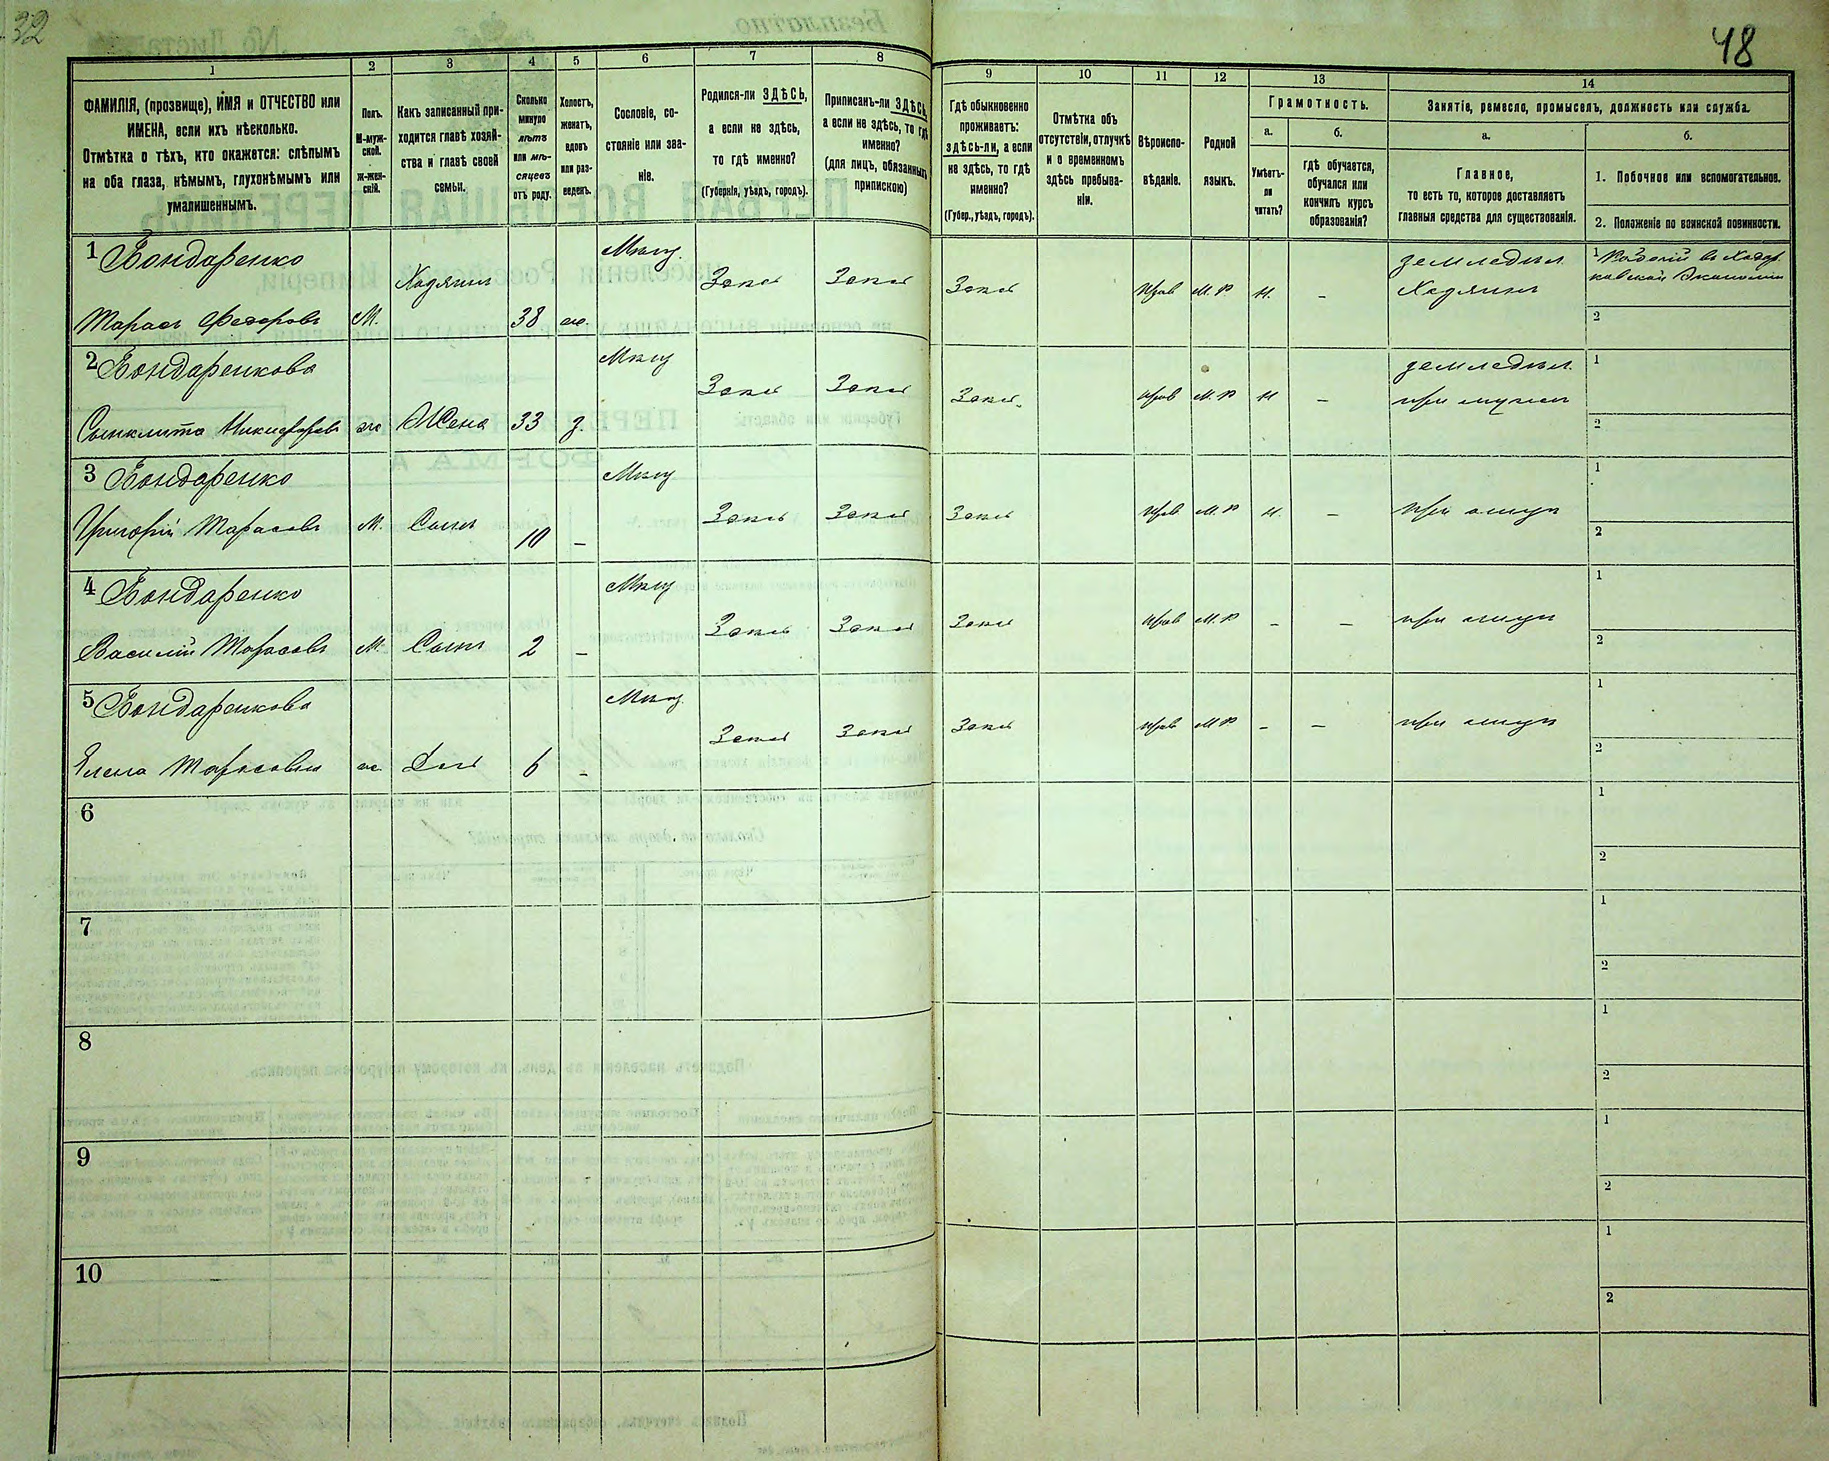 32
48
1 2 3 4 5 6 7 8 9 10 11 12 13 14
ФАМИЛІЯ, (прозвище), ИМЯ и ОТЧЕСТВО или
ИМЕНА, если ихъ нѣсколько.
Отмѣтка о тѣхъ, кто окажется: слѣпымъ
на оба глаза, нѣмымъ, глухонѣмымъ или
умалишеннымъ.
Полъ.
М-муж-
ской.
Ж-жен-
скій.
Какъ записанный при-
ходится главѣ хозяй-
ства и главѣ своей
семьи.
Сколько
минуло
лѣтъ
или мѣ-
сяцевъ
отъ роду.
Холостъ,
женатъ,
вдовъ
или раз-
веденъ.
Сословіе, со-
стояніе или зва-
ніе.
Родился-ли ЗДѢСЬ,
а если не здѣсь,
то гдѣ именно?
(Губернія, уѣздъ, городъ).
Приписанъ-ли ЗДѢСЬ,
а если не здѣсь, то гдѣ
именно?
(для лицъ, обязанныхъ
припискою)
Гдѣ обыкновенно
проживаетъ:
здѣсь-ли, а если
не здѣсь, то гдѣ
именно?
(Губер., уѣздъ, городъ).
Отмѣтка объ
отсутствіи, отлучкѣ
и о временномъ
здѣсь пребыва-
ніи.
Вѣроиспо-
вѣданіе.
Родной
языкъ.
Грамотность.
а.
Умѣетъ-
ли
читать?
б.
гдѣ обучается,
обучался или
кончилъ курсъ
образованія?
Занятіе, ремесло, промыселъ, должность или служба.
а.
Главное,
то есть то, которое доставляетъ
главныя средства для существованія.
б.
1. Побочное или вспомогательное.
2. Положеніе по воинской повинности.
1 Бондаренко
Тарасъ Федоровъ М. Хозяинъ 38 ж. Мѣщ. Здѣсь Здѣсь Здѣсь Прав М.Р. Н. –
земледѣл.
Хозяинъ
1
2
2 Бондаренкова
Сынклита Никифоров ж Жена 33 з. Мѣщ Здѣсь Здѣсь Здѣсь. Прав М.Р Н –
земледѣл.
при мужѣ
1
2
3 Бондаренко
Григорій Тарасовъ М. Сынъ 10 – Мѣщ Здѣсь Здѣсь Здѣсь Прав М.Р Н. – при отцѣ
1
2
4 Бондаренко
Василій Тарасовъ М. Сынъ 2 – Мѣщ Здѣсь Здѣсь Здѣсь Прав М.Р – – при отцѣ
1
2
5 Бондаренкова
Елена Тарасовна ж Дочь 6 – Мѣщ. Здѣсь Здѣсь Здѣсь Прав М.Р – – при отцѣ
1
2
6
1
2
7
1
2
8
1
2
9
1
2
10
1
2